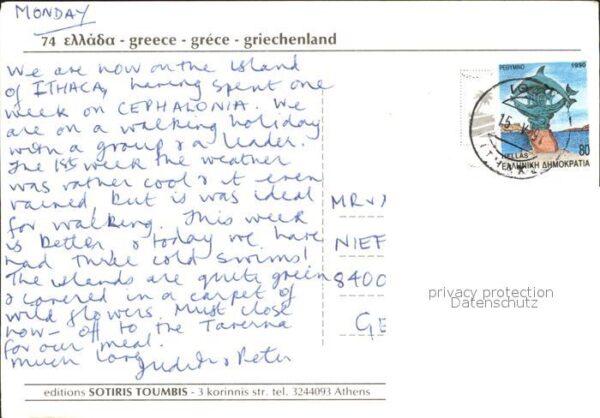 MONDAY
74 ελλάδα - greece - gréce - griechenland
We are now on the island
of ITHACA, having spent one
week on CEPHALONIA. We
are on a walking holiday
with a group & a leader.
The 1st week the weather
was rather cool & it even
rained, but is was ideal
for walking. This week
is better & today we have
had three cold swims!
The islands are quite green
& covered in a carpet of
wild flowers. Must close
now - off to the Taverna
for our meal.
Much love
Judith & Peter
ΡΕΘΥΜΝΟ 1990
80
HELLAS
ΕΛΛΗΝΙΚΗ ΔΗΜΟΚΡΑΤΙΑ
MR &
NIEF
8400
GE
privacy protection
Datenschutz
editions SOTIRIS TOUMBIS - 3 korinnis str. tel. 3244093 Athens